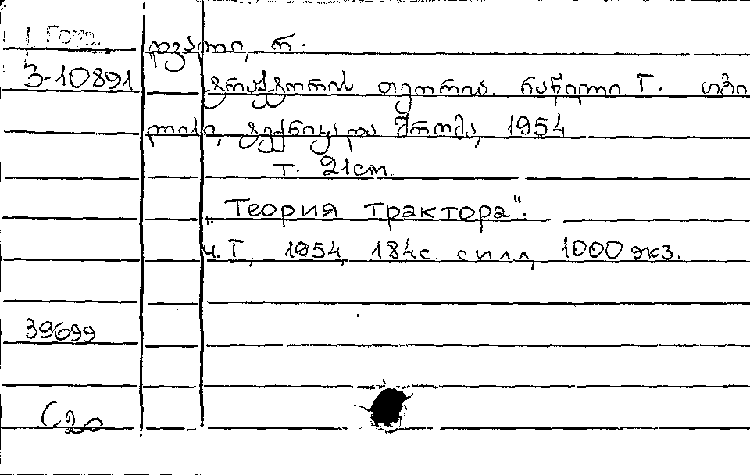 დვალი, რ.
3-10891
ტრაქტორის თეორია. ნაწილი I. თბი
ლისი, ტექნიკა და შრომა, 1954
т. 21см.
„Теория трактора".
ч. I, 1954, 184с с илл, 1000 экз.
39699